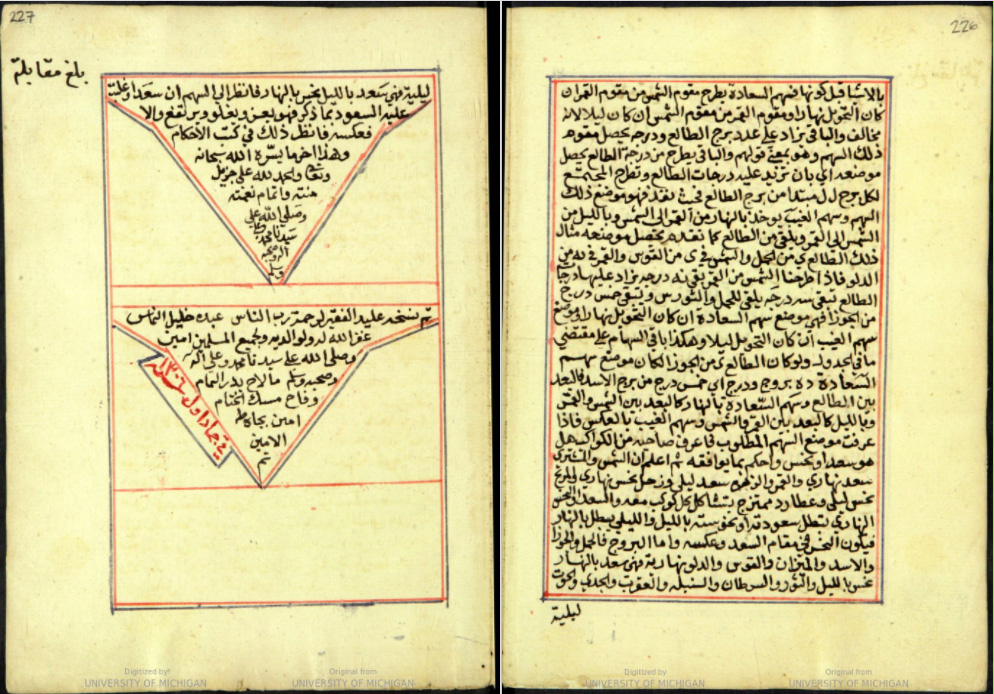 226
بالاشاقبل كونها فسهم السعادة بطرح مقوم الشمس من مقوم القمر ان
كان التحويل نهارا ومقوم القمر من مقوم الشمس ان كان ليلا لانه
مخالف والباقي يزاد على عدد برج الطالع ودرجه يحصل مقوم
ذلك السهم وهو معنى قولهم والباقي يطرح من درجة الطالع يحصل
موضعه اي بان تزيد عليه درجات الطالع وتطرح المجتمع
لكل برج ل مبتدا من برج الطالع فحيث نفد فهو موضع ذلك
السهم وسهم الغيب يوخذ بالنهار من القمر الى الشمس وبالليل من
الشمس الى القمر ويلقى من الطالع كما تقدم يحصل موضعه مثال
ذلك الطالع ى من الحمل والشمس في ى من القوس والقمر في من
الدلو فاذا طرحنا الشمس من القمر بقي نه درجه يزاد عليها درجات
الطالع تبقى سه درجه يلقى للحمل والثور س ويبقى خمس درج
من الجوزا فهي موضع سهم السعادة ان كان التحويل نهارا وموضع
سهم الغيب ان كان التحويل ليلا وهكذا باقي السهام على مقتضى
ما في الجدول ولو كان الطالع ى من الجوزا لكان موضع سهم
السعادة ده بروج ودرج اي خمس درج من برج الاسد فالبعد
بين الطالع وسهم السعادة بالنهار كالبعد بين الشمس والقمر
وبالليل كالبعد بين القمر والشمس وسهم الغيب بالعكس فاذا
عرفت موضع السهم المطلوب فاعرف صاحبه من الكواكب هل
هو سعد او نحس واحكم بما يوافقه ثم اعلم ان الشمس والمشتري
سعد نهاري والقمر والزهرة سعد ليلي وزحل نحس نهاري والمريخ
نحس ليلي وعطارد ممتزج يتشاكل بكل كوكب معه والسعد او النحس
النهاري تبطل سعودته او نحوسته بالليل والليلي يبطل بالنهار
فيكون النحس في مقام السعد وعكسه واما البروج فالحمل والجوزا
والاسد والميزان والقوس والدلو نهارية فهي سعد بالنهار
نحس بالليل والثور والسرطان والسنبله والعقرب والجدي والحوت
ليلية
227
بلغ مقابلة
ليلية فهي سعد بالليل نحس بالنهار فانظر الى السهم ان سعدا وغلبت
عليه السعود بما ذكر فهو يعز ويعلو ويرتفع والا
فعكسه فانظر ذلك في كتب الاحكام
وهذا اخر ما يسره الله سبحانه
وتعالى والحمد لله على جزيل
منته واتمام نعمته
وصلى الله على
سيدنا محمد وعلى
اله وصحبه
وسلم
تم بنسخه عليد الفقير لرحمة رب الناس عبده خليل الناس
غفر الله له ولوالديه ولجميع المسلمين امين
وصلى الله على سيدنا محمد وعلى اله
وصحبه وسلم ما لاح بدر التمام
وفاح مسك الختام
امين بجاه طه
الامين
تم
في جماد اول سنة ١٣٠٦
Digitized by
UNIVERSITY OF MICHIGAN
Original from
UNIVERSITY OF MICHIGAN
Digitized by
UNIVERSITY OF MICHIGAN
Original from
UNIVERSITY OF MICHIGAN